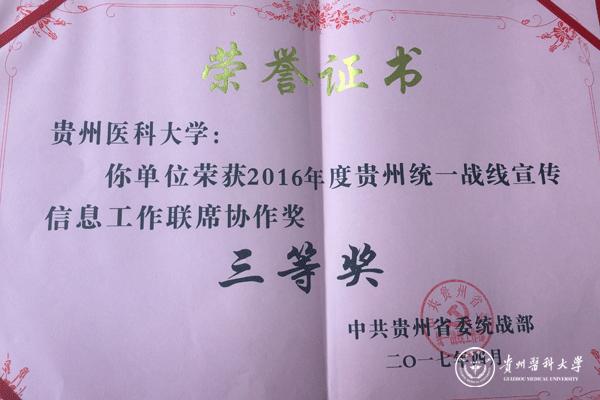 荣誉证书
贵州医科大学：
你单位荣获2016年度贵州统一战线宣传
信息工作联席协作奖
三等奖
中共贵州省委统战部
二〇一七年四月
贵州医科大学
GUIZHOU MEDICAL UNIVERSITY